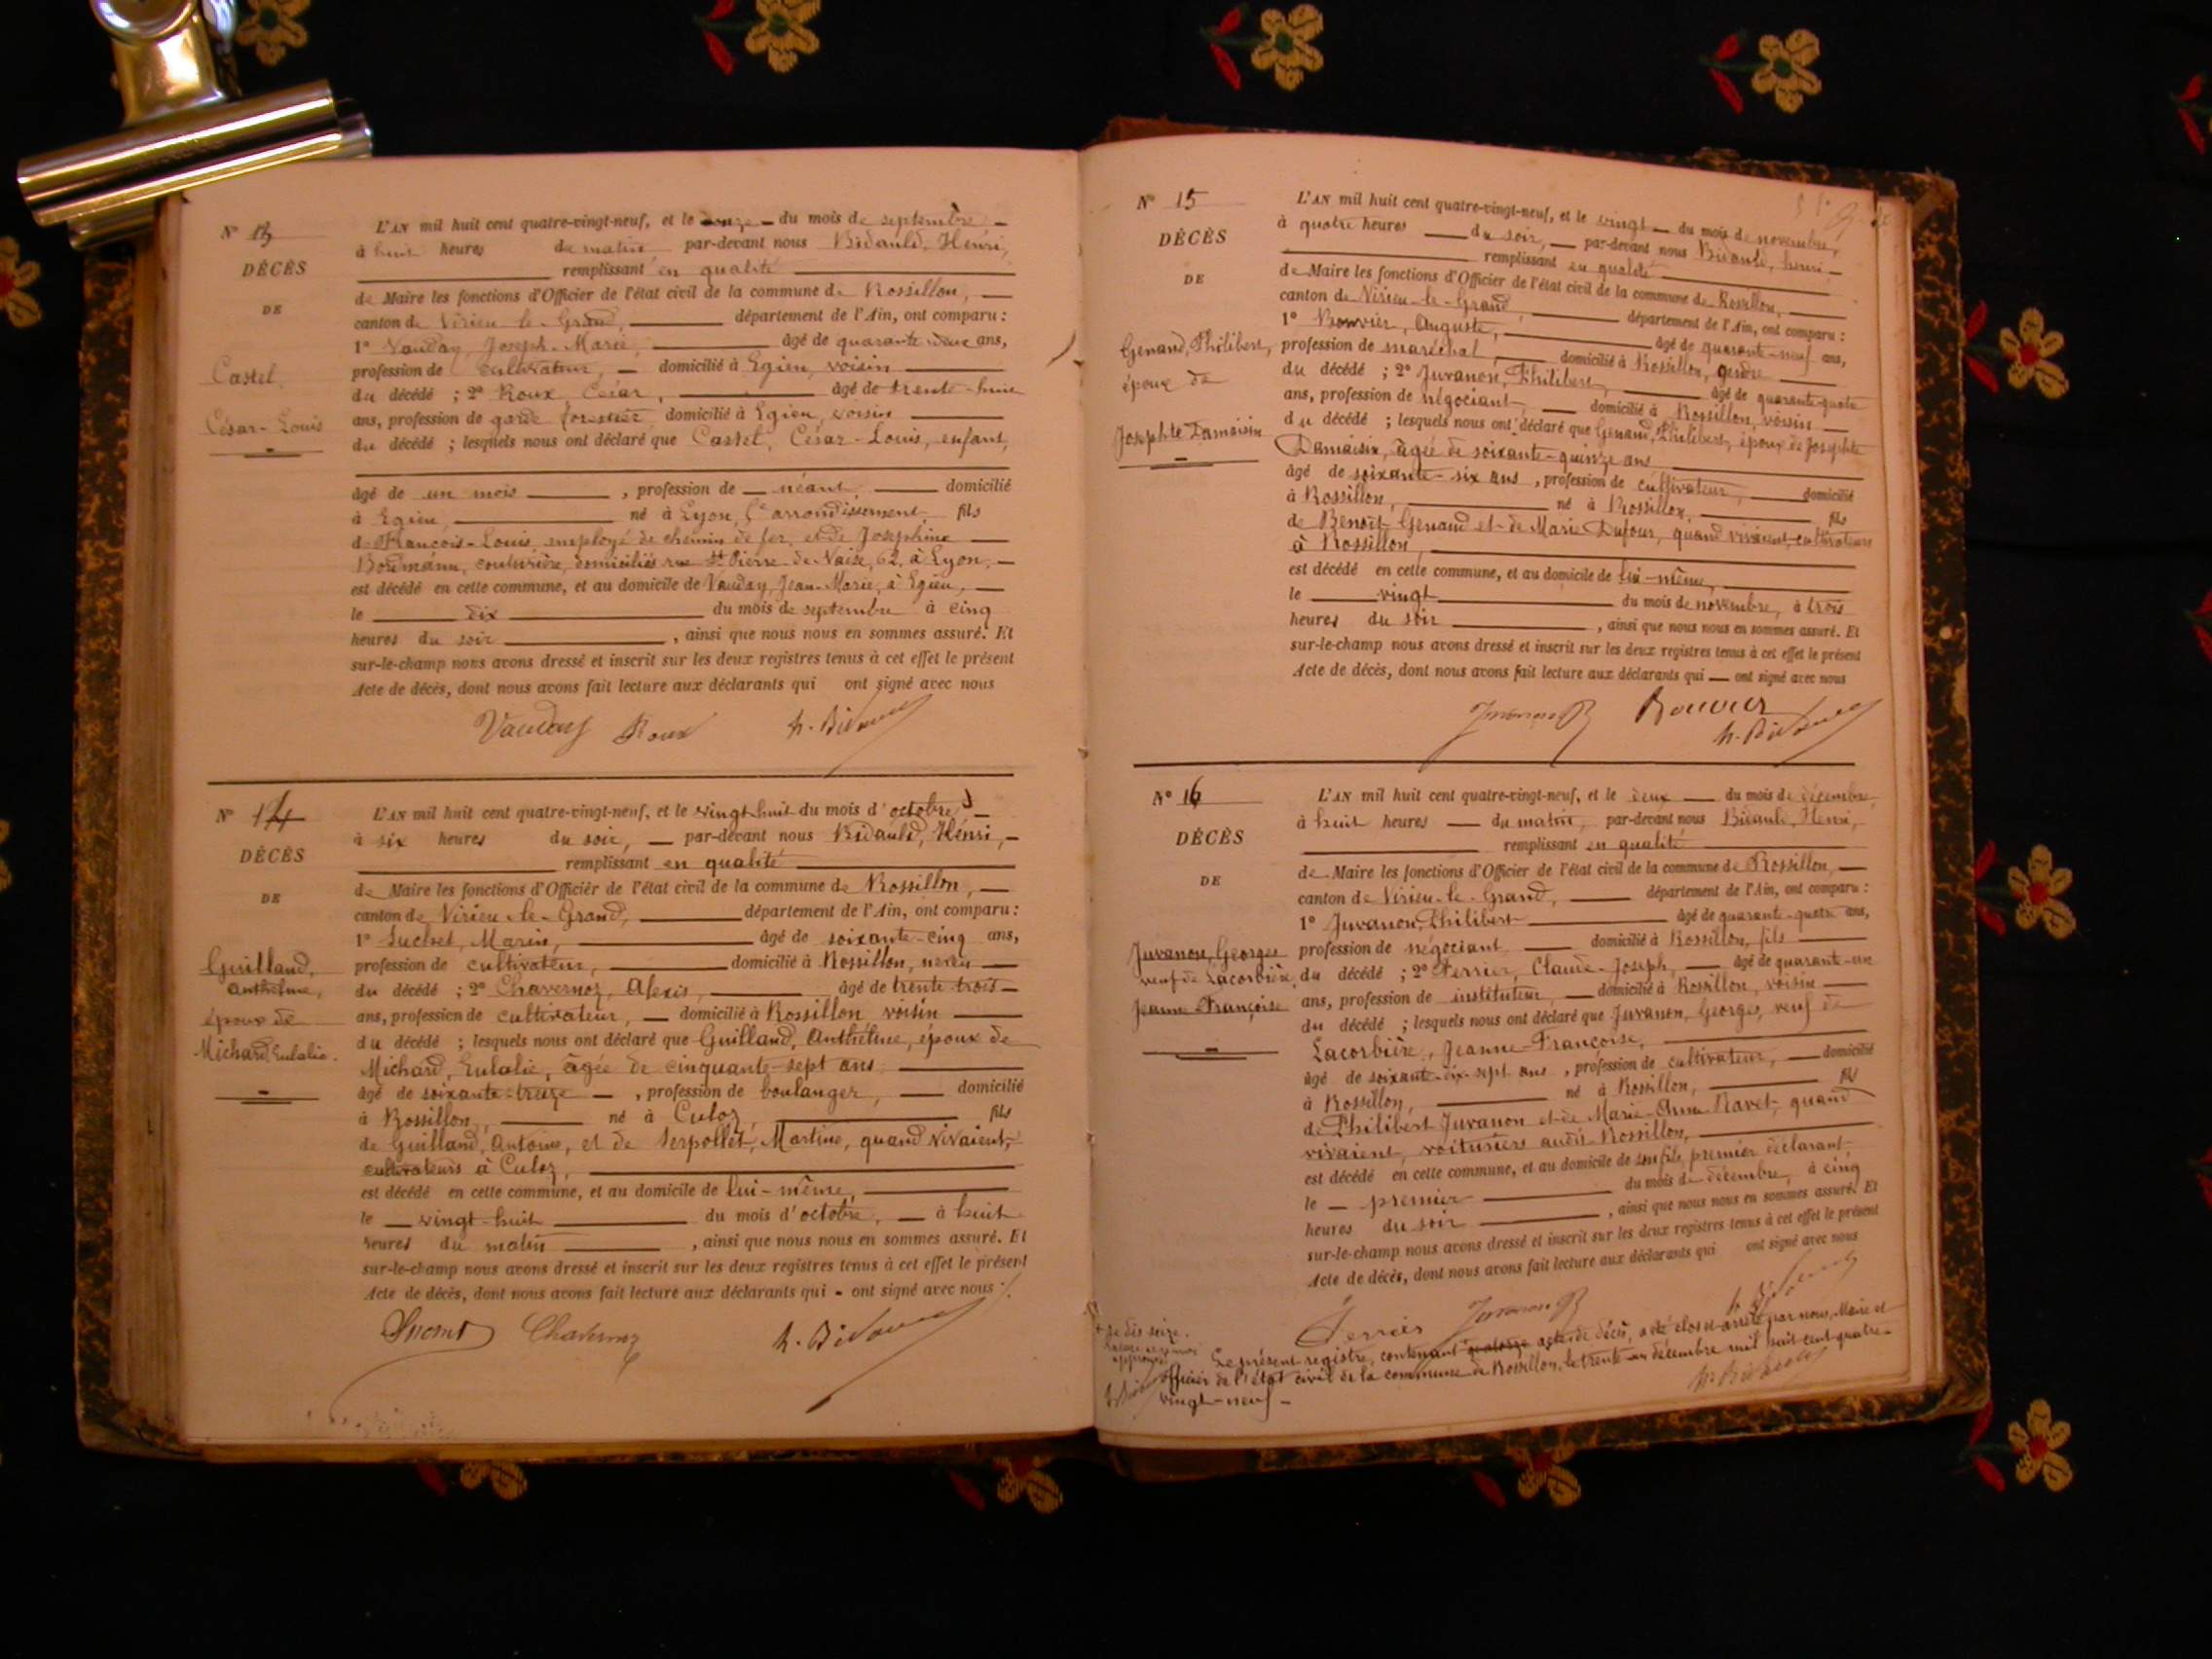 N° 13
DÉCÈS
DE
Castel
César-Louis
L'AN mil huit cent quatre-vingt-neuf, et le onze du mois de septembre
à huit heures du matin par-devant nous Bidauld, Henri,
remplissant en qualité
de Maire les fonctions d'Officier de l'état civil de la commune de Rossillon,
canton de Virieu-le-Grand, département de l'Ain, ont comparu :
1° Vauday, Joseph-Marie, âgé de quarante-deux ans,
profession de cultivateur, domicilié à Egieu, voisin
du décédé ; 2° Roux, César, âgé de trente-huit
ans, profession de garde forestier, domicilié à Egieu, voisin
du décédé ; lesquels nous ont déclaré que Castel, César-Louis, enfant,
âgé de un mois, profession de néant, domicilié
à Egieu, né à Lyon, 5e arrondissement, fils
de François-Louis, employé de chemin de fer, et de Joséphine
Boumann, couturière, domiciliés rue St Pierre-de-Vaise, 62, à Lyon,
est décédé en cette commune, et au domicile de Vauday, Jean-Marie, à Egieu,
le dix du mois de septembre à cinq
heures du soir, ainsi que nous nous en sommes assuré. Et
sur-le-champ nous avons dressé et inscrit sur les deux registres tenus à cet effet le présent
Acte de décès, dont nous avons fait lecture aux déclarants qui ont signé avec nous
Vauday Roux h. Bidauld
N° 14
DÉCÈS
DE
Guilland,
Anthelme,
époux de
Michard, Eulalie.
L'AN mil huit cent quatre-vingt-neuf, et le vingt-huit du mois d'octobre,
à six heures du soir, par-devant nous Bidauld, Henri,
remplissant en qualité
de Maire les fonctions d'Officier de l'état civil de la commune de Rossillon,
canton de Virieu-le-Grand, département de l'Ain, ont comparu :
1° Suchet, Marin, âgé de soixante-cinq ans,
profession de cultivateur, domicilié à Rossillon, neveu
du décédé ; 2° Chavernoz, Alexis, âgé de trente-trois
ans, profession de cultivateur, domicilié à Rossillon voisin
du décédé ; lesquels nous ont déclaré que Guilland, Anthelme, époux de
Michard, Eulalie, âgée de cinquante-sept ans,
âgé de soixante-treize, profession de boulanger, domicilié
à Rossillon, né à Culoz, fils
de Guilland, Antoine, et de Serpollet, Martine, quand vivaient,
cultivateurs à Culoz,
est décédé en cette commune, et au domicile de lui-même,
le vingt-huit du mois d'octobre, à huit
heures du matin, ainsi que nous nous en sommes assuré. Et
sur-le-champ nous avons dressé et inscrit sur les deux registres tenus à cet effet le présent
Acte de décès, dont nous avons fait lecture aux déclarants qui - ont signé avec nous
Chavernoz h. Bidauld
N° 15
DÉCÈS
DE
Genand, Philibert,
époux de
Josephte Damaisin
L'AN mil huit cent quatre-vingt-neuf, et le vingt du mois de novembre,
à quatre heures du soir, par-devant nous Bidauld, henri
remplissant en qualité
de Maire les fonctions d'Officier de l'état civil de la commune de Rossillon,
canton de Virieu-le-Grand, département de l'Ain, ont comparu :
1° Bouvier, Auguste, âgé de quarante-neuf ans,
profession de maréchal, domicilié à Rossillon, gendre
du décédé ; 2° Juvanon, Philibert, âgé de quarante-quatre
ans, profession de négociant, domicilié à Rossillon, voisin
du décédé ; lesquels nous ont déclaré que Genand, Philibert, époux de Josephte
Damaisin, âgée de soixante-quinze ans
âgé de soixante-six ans, profession de cultivateur, domicilié
à Rossillon, né à Rossillon, fils
de Benoît Genand et de Marie Dufour, quand vivaient, cultivateurs
à Rossillon,
est décédé en cette commune, et au domicile de lui-même,
le vingt du mois de novembre, à trois
heures du soir, ainsi que nous nous en sommes assuré. Et
sur-le-champ nous avons dressé et inscrit sur les deux registres tenus à cet effet le présent
Acte de décès, dont nous avons fait lecture aux déclarants qui — ont signé avec nous
Juvanon P. Bouvier
h. Bidauld
N° 16
DÉCÈS
DE
Juvanon, Georges
veuf de Lacorbière,
Jeanne Françoise
L'AN mil huit cent quatre-vingt-neuf, et le deux du mois de décembre,
à huit heures du matin, par-devant nous Bidauld, Henri,
remplissant en qualité
de Maire les fonctions d'Officier de l'état civil de la commune de Rossillon,
canton de Virieu-le-Grand, département de l'Ain, ont comparu :
1° Juvanon, Philibert âgé de quarante-quatre ans,
profession de négociant domicilié à Rossillon, fils
du décédé ; 2° Perrier, Claude-Joseph, âgé de quarante-un
ans, profession de instituteur, domicilié à Rossillon, voisin
du décédé ; lesquels nous ont déclaré que Juvanon, Georges, veuf de
Lacorbière, Jeanne-Françoise,
âgé de soixante-dix-sept ans, profession de cultivateur, domicilié
à Rossillon, né à Rossillon, fils
de Philibert Juvanon et de Marie-Anne Ravet, quand
vivaient, voituriers audit Rossillon,
est décédé en cette commune, et au domicile de son fils, premier déclarant
le premier du mois de décembre, à cinq
heures du soir, ainsi que nous nous en sommes assuré. Et
sur-le-champ nous avons dressé et inscrit sur les deux registres tenus à cet effet le présent
Acte de décès, dont nous avons fait lecture aux déclarants qui ont signé avec nous
Perrier Juvanon P. h. Bidauld
Le présent registre, contenant quatorze actes de décès, a été clos et arrêté par nous, Maire et
officier de l'état civil de la commune de Rossillon, le trente-un décembre mil huit cent quatre-
vingt-neuf.
h. Bidauld